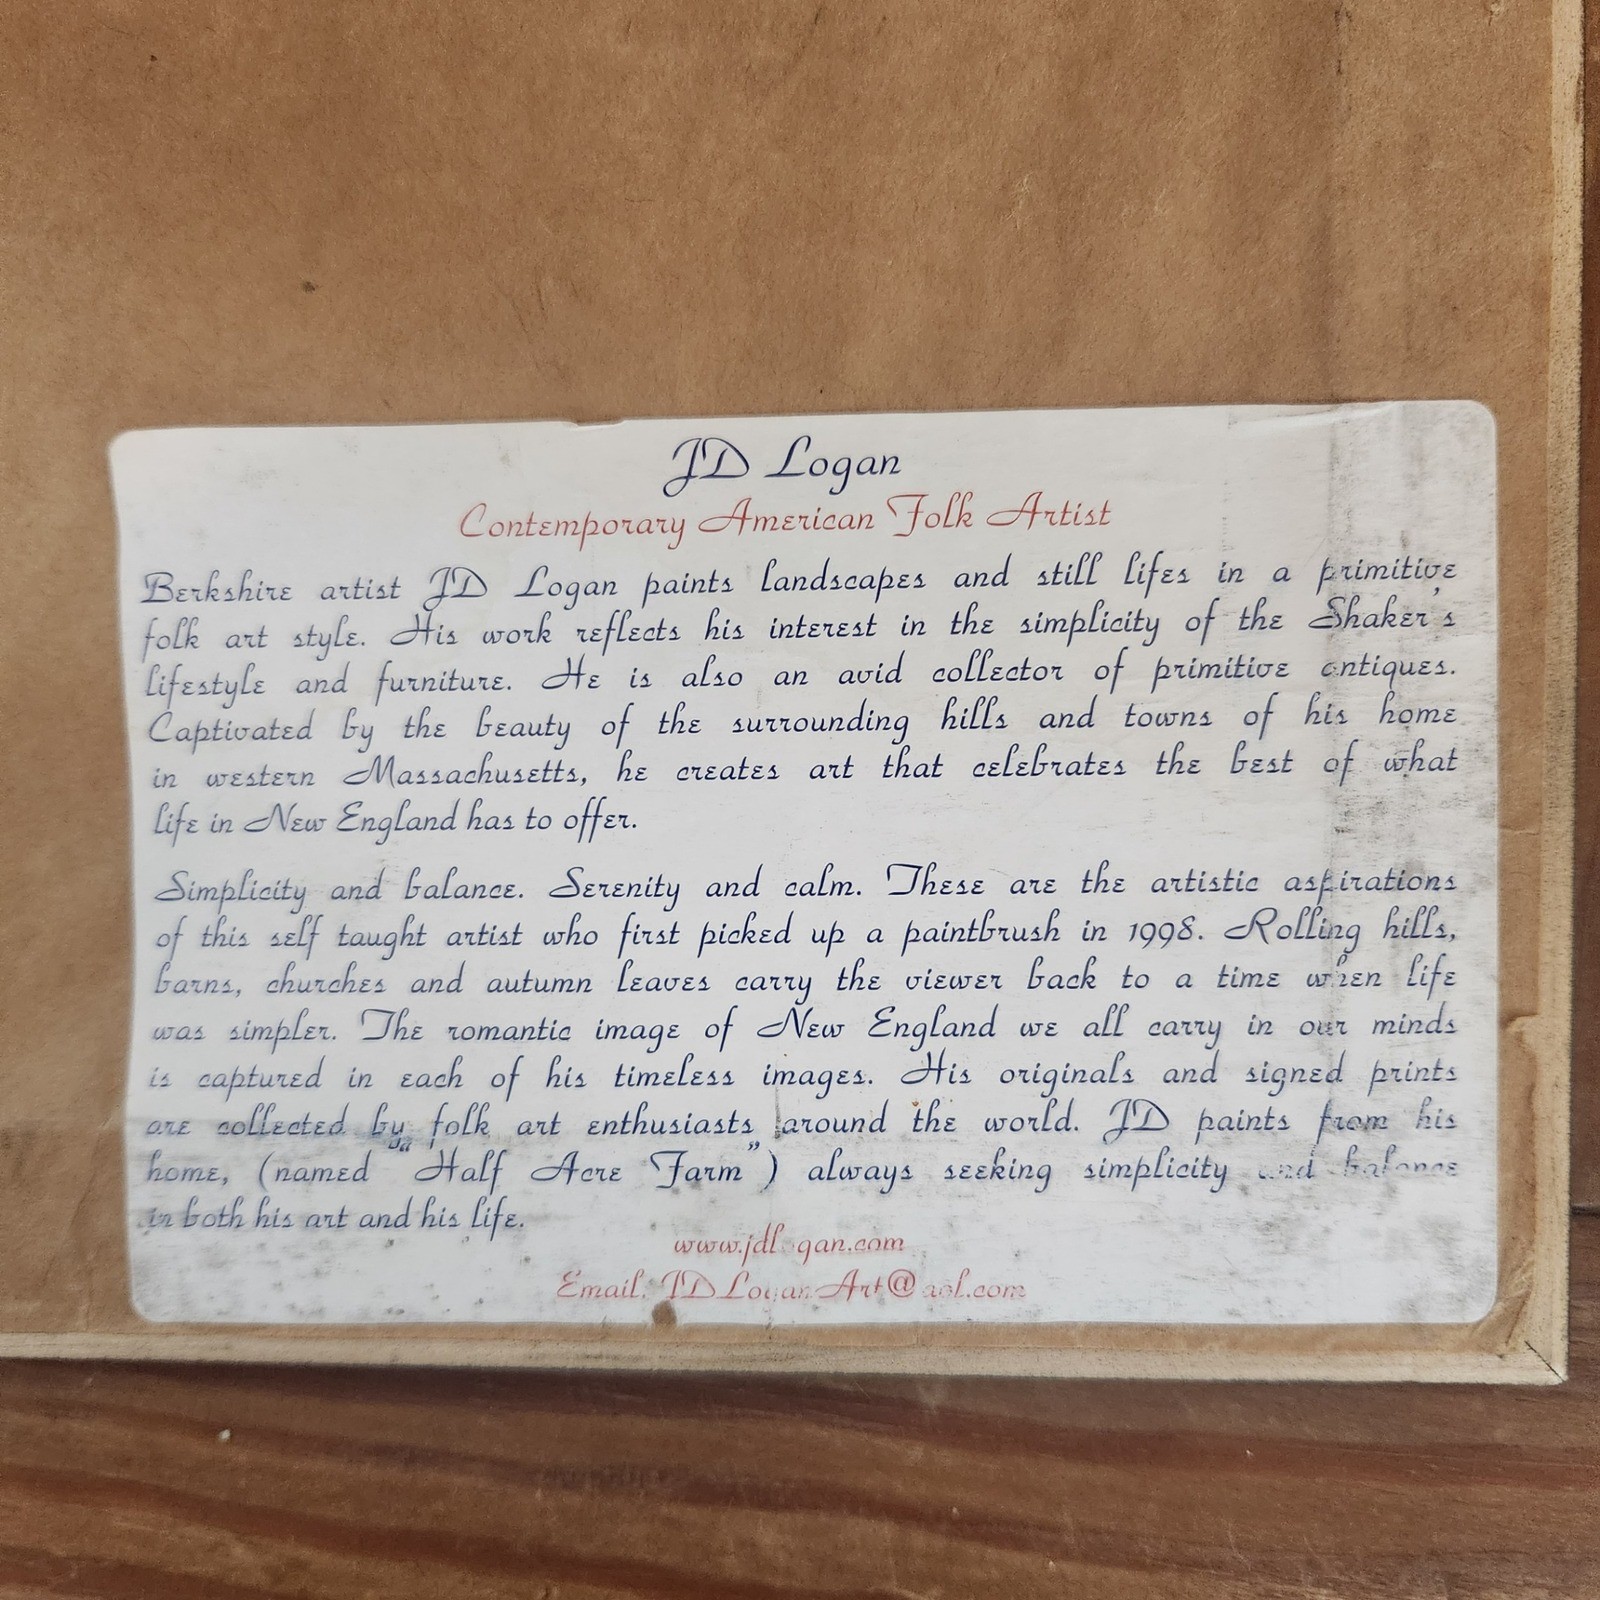 JD Logan
Contemporary American Folk Artist
Berkshire artist JD Logan paints landscapes and still lifes in a primitive
folk art style. His work reflects his interest in the simplicity of the Shaker's
lifestyle and furniture. He is also an avid collector of primitive antiques.
Captivated by the beauty of the surrounding hills and towns of his home
in western Massachusetts, he creates art that celebrates the best of what
life in New England has to offer.
Simplicity and balance. Serenity and calm. These are the artistic aspirations
of this self taught artist who first picked up a paintbrush in 1998. Rolling hills,
barns, churches and autumn leaves carry the viewer back to a time when life
was simpler. The romantic image of New England we all carry in our minds
is captured in each of his timeless images. His originals and signed prints
are collected by folk art enthusiasts around the world. JD paints from his
home, (named "Half Acre Farm") always seeking simplicity and balance
in both his art and his life.
www.jdlogan.com
Email: JDLoganArt@aol.com